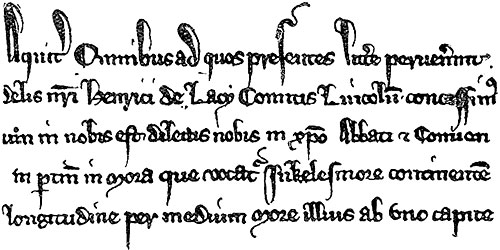 Aquit Omnibus ad quos presentes littere pervenerint
delis nri Henrici de Lacy Comitis Lincoln concessim9
um in nobis est dilectis nobis in xpo Abbati ⁊ Conven
in ptin in mora que vocat Inkelesmore continentem
longitudine per medium more illius ab uno capite